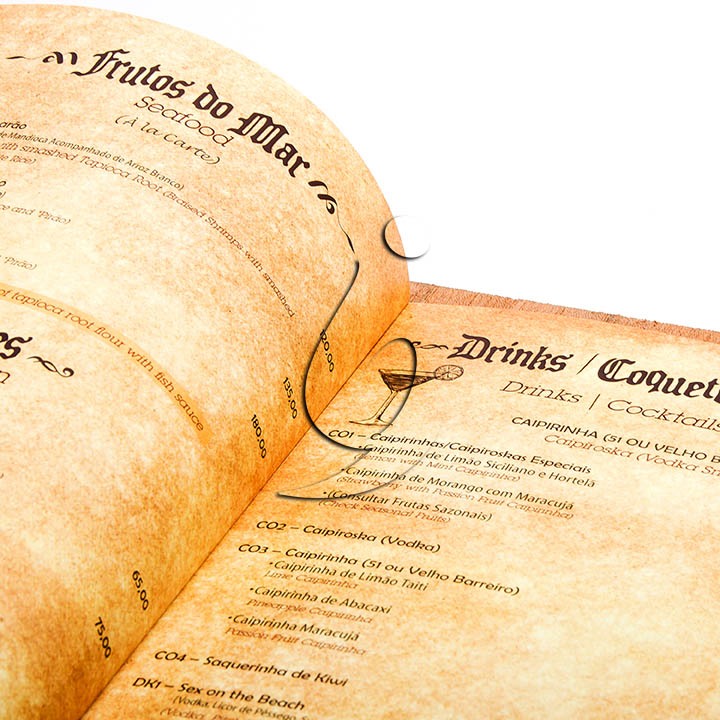 Frutos do Mar
Seafood
(À la Carte)
de Mandioca Acompanhado de Arroz Branco)
with smashed Tapioca Root (Braised Shrimps with smashed
Rice)
ce and "Pirão)
"Pirão)
tapioca root flour with fish sauce
120,00
135,00
180,00
65,00
75,00
Drinks / Coquet
Drinks | Cocktails
CAIPIRINHA (51 OU VELHO B
Caipiroska (Vodka Sm
CO1 – Caipirinhas/Caipiroskas Especiais
•Caipirinha de Limão Siciliano e Hortelã
(Lemon with Mint Caipirinha)
•Caipirinha de Morango com Maracujá
(Strawberry with Passion Fruit Caipirinha)
•(Consultar Frutas Sazonais)
(Check Seasonal Fruits)
CO2 – Caipiroska (Vodka)
CO3 – Caipirinha (51 ou Velho Barreiro)
•Caipirinha de Limão Taiti
Lime Caipirinha
•Caipirinha de Abacaxi
Pineapple Caipirinha
•Caipirinha Maracujá
Passion Fruit Caipirinha
CO4 – Saquerinha de Kiwi
DK1 – Sex on the Beach
(Vodka, Licor de Pêssego, S
(Vodka,